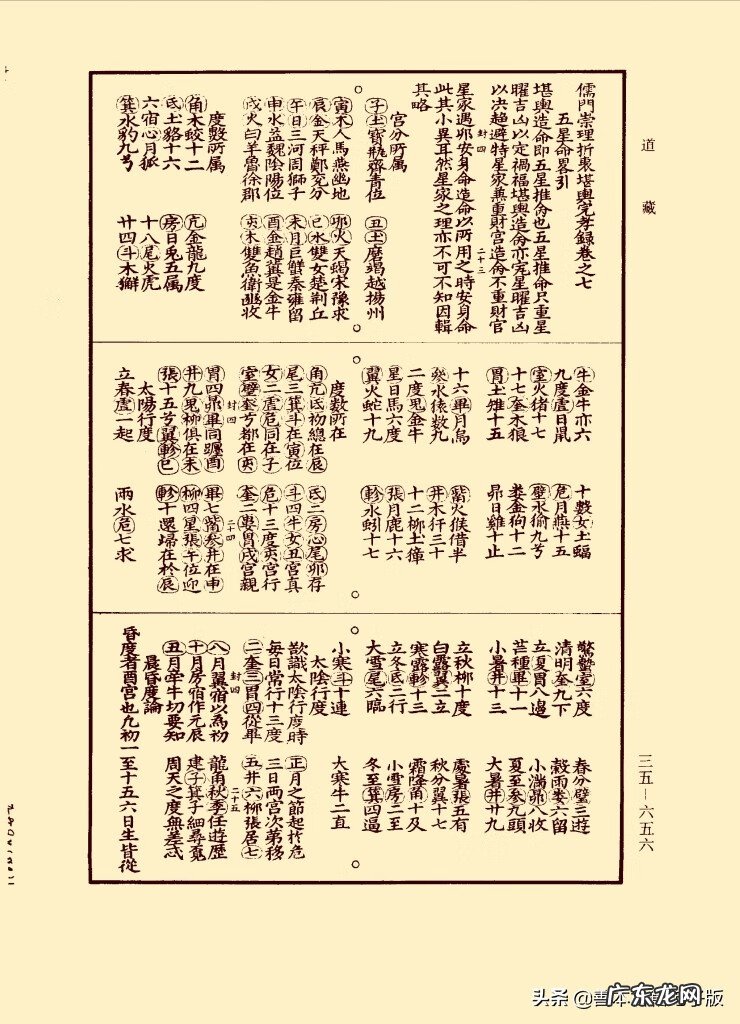 道藏
儒門崇理折衷堪輿完孝錄卷之七
五星命畧引
堪輿造命即五星推命也五星推命只重星
曜吉凶以定禍福堪輿造命亦完星曜吉凶
以决趨避特星家兼重財官造命不重財官
封四 二十三
星家遇卯安身命造命以所用之時安身命
此其小異耳然星家之理亦不可不知因輯
其略
宮分所屬
子土寶瓶齊青位 丑土磨竭越揚州
寅木人馬燕幽地 卯火天蝎宋豫求
辰金天秤鄭兗分 巳水雙女楚荆丘
午日三河周獅子 未月巨蟹秦雍留
申水益魏陰陽位 酉金趙冀是金牛
戌火白羊魯徐郡 亥木雙魚衛岷收
度數所屬
角木蛟十二 亢金龍九度
氐土貉十六 房日兎五属
六宿心月狐 十八尾火虎
箕水豹九兮 廿四斗木獬
牛金牛亦六 十數女土蝠
九度虛日鼠 危月燕十五
室火猪十七 壁水㺄九兮
十七奎木狼 婁金狗十二
胃土雉十五 昴日雞十止
十六畢月烏 觜火猴借半
參水猿數九 井木犴三十
二度鬼金牛 十二柳土獐
星日馬六度 張月鹿十六
翼火蛇十九 軫水蚓十七
度數所在
角亢氐初總在辰 氐二房心尾卯存
尾三箕斗在寅位 斗四牛女丑宮真
女二虛危同在子 危十三度亥宮行
室璧奎兮都在亥 奎二婁胃戌宮親
封四 二十四
胃四昴畢同躔酉 畢七觜參井在申
井九鬼柳俱在未 柳四星張午位迎
張十五兮翼軫巳 軫十還埽在於辰
太陽行度
立春虛一起 雨水危七求
驚蟄室六度 春分璧三遊
清明奎九下 穀雨婁六留
立夏胃八邊 小滿昴八收
芒種畢十一 夏至參九頭
小暑井十三 大暑井廿九
立秋柳十度 處暑張五有
白露翼二立 秋分翼十七
寒露軫十三 霜降角十及
立冬氐二行 小雪房二至
大雪尾六臨 冬至箕四逼
小寒斗十連 大寒牛二直
太陰行度
欲識太陰行度時 正月之節起於危
每日常行十三度 三日两宮次第移
二奎三胃四從畢 五井六柳張居七
封四 二十五
八月翼宿以為初 龍角秋季任遊歷
十月房宿作元辰 建子箕子細尋覔
丑月牽牛切要知 周天之度無差忒
晨昏度論
昏度者酉宮也九初一至十五六日生皆從
三五—六五六
头条
广东龙网
版